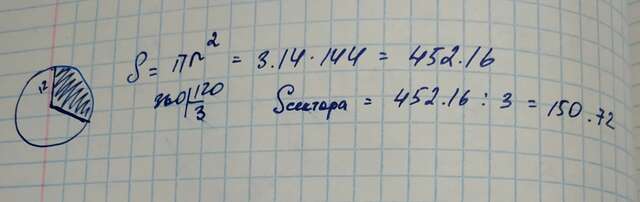 S = πr² = 3.14 · 144 = 452.16
12
360 | 120
3
Sсектора = 452.16 : 3 = 150.72